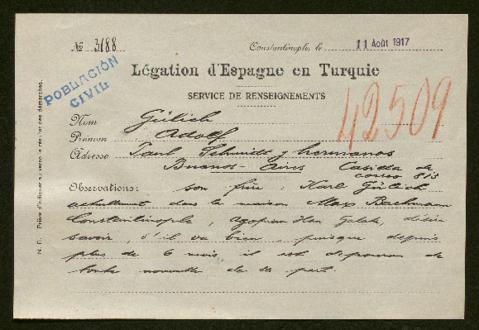 № 3188
Constantinople, le 11 Août 1917
Légation d'Espagne en Turquie
SERVICE DE RENSEIGNEMENTS
POBLACIÓN CIVIL
42509
Nom Gülich
Prénom Adolf
Adresse Paul Schmidt y hermanos
Buenos-Aires Casilla de
correo 813
Observations: son frère, Karl Gülich
actuellement dans la maison Max Bachmann
Constantinople, Han Galata, désire
savoir, s'il va bien, puisque depuis
plus de 6 mois, il est dépourvu de
toute nouvelle de sa part.
N. B. Prière d'indiquer au verso le résultat des démarches.